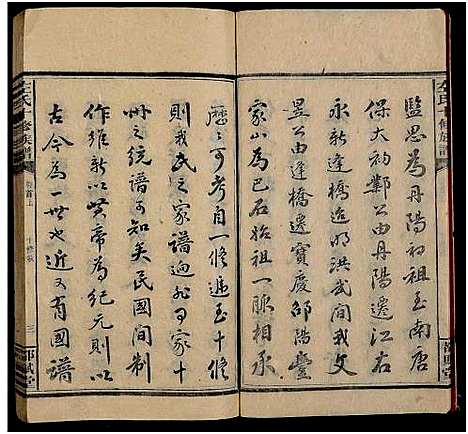 監思為丹陽初祖至南唐
保大初鄴公由丹陽遷江右
永新逢橋迨明洪武間我文
昱公由逢橋遷寶慶邵陽豐
家山為巴石始祖一脈相承
歷歷可考自一修遞至十修
則我氏之家譜迥非旬家十
卅之統譜可知矣民國間制
作維新以黃帝為紀元則以
古今為一世也近又有國譜
左氏十修族譜
卷首上
十修敘
三